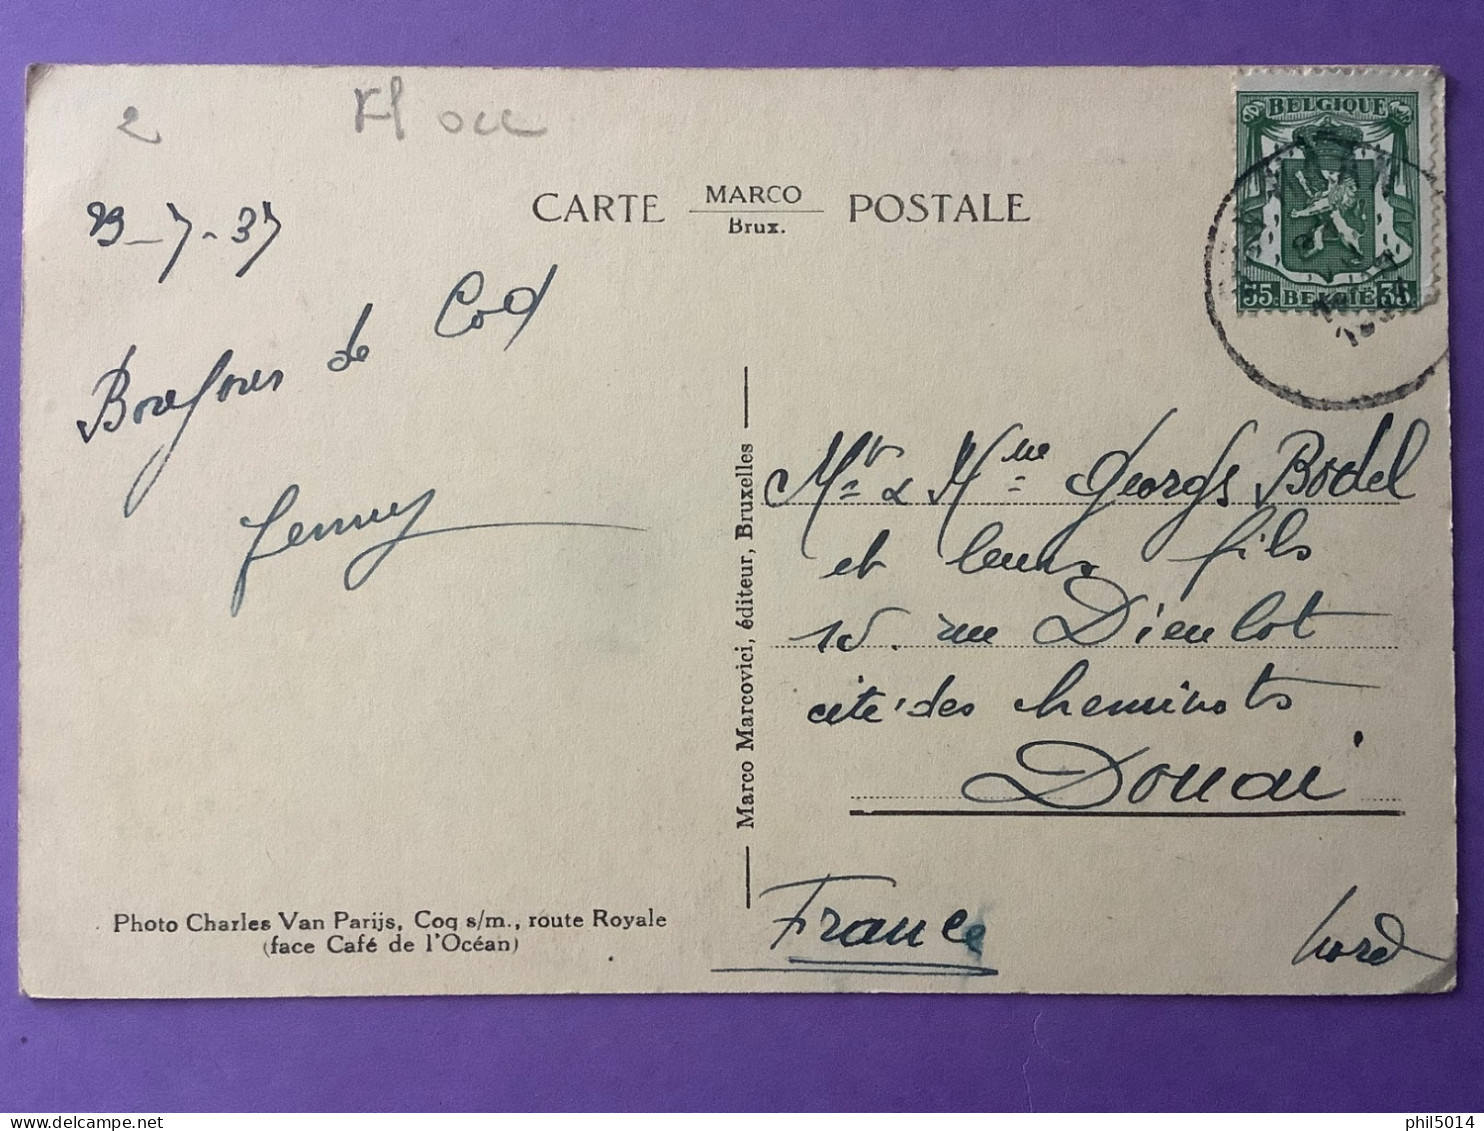 2
Fl occ
CARTE MARCO POSTALE
Brux.
BELGIQUE
35 BELGIË 35
1937
29-7-37
Bonjour de Coq
Jenny
Mr & Mme Georges Bodel
et leurs fils
15. rue Dieulot
cité des cheminots
Douai
France
Nord
Marco Marcovici, éditeur, Bruxelles
Photo Charles Van Parijs, Coq s/m., route Royale
(face Café de l'Océan)
phil5014